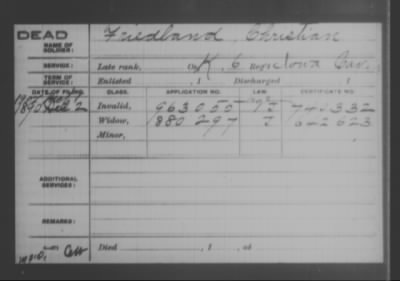 DEAD
NAME OF SOLDIER:
Friedland, Christian
SERVICE:
Late rank, Co. K, 6 Reg't Iowa Cav.
TERM OF SERVICE:
Enlisted , 1 Discharged , 1
DATE OF FILING. CLASS. APPLICATION NO. LAW. CERTIFICATE NO.
1890 Invalid, 963050 740332
Widow, 880297 642623
Minor,
ADDITIONAL SERVICES:
REMARKS:
Died , 1 , at